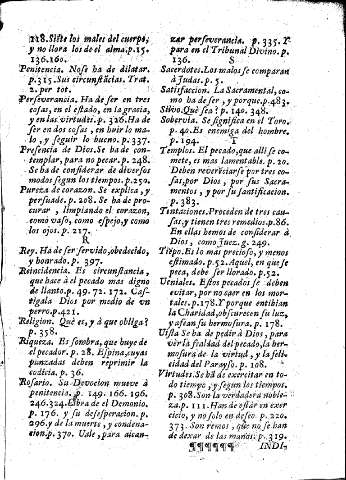 218. Siste los males del cuerpo,
y no llora los de el alma. p. 15.
136. 160.
Penitencia. No se ha de dilatar.
p. 315. Sus circunstãcias. Trat.
2. per tot.
Perseverancia. Ha de ser en tres
cosas, en el estado, en la gracia,
y en las virtudes. p. 326. Ha de
ser en dos cosas, en huir lo ma-
lo, y seguir lo bueno. p. 337.
Presencia de Dios. Se ha de con-
templar, para no pecar. p. 248.
Se ha de considerar de diversos
modos segun los estados. p. 250.
Pureza de corazon. Se explica, y
persuade. p. 208. Se ha de pro-
curar, limpiando el corazon,
como vaso, como espejo, y como
los ojos. p. 217.
R
Rey. Ha de ser servido, obedecido,
y honrado. p. 397.
Reincidencia. Es circunstancia,
que hace à el pecado mas digno
de llanto. p. 49. 72. 172. Cas-
tigala Dios por medio de un
perro. p. 421.
Religion. Què es, y à que obliga?
p. 358.
Riqueza. Es sombra, que huye de
el pecador. p. 28. Espina, cuyas
punzadas deben reprimir la
codicia. p. 36.
Rosario. Su Devocion mueve à
penitencia. p. 149. 166. 196.
246. 324. Libra de el Demonio.
p. 176. y su desesperacion. p.
296. y de la muerte, y condena-
cion. p. 370. Vale, para alcan-
zar perseverancia. p. 335. Y
para en el Tribunal Divino. p.
136.
S
Sacerdotes. Los malos se comparan
à Judas. p. 5.
Satisfaccion. La Sacramental, co-
mo ha de ser, y porque. p. 483.
Silvo. Què sea? p. 140. 348.
Sobervia. Se significa en el Toro.
p. 40. Es enemiga del hombre.
p. 194.
T
Templos. El pecado, que alli se co-
mete, es mas lamentable. p. 20.
Deben reverẽciarse por tres co-
sas, por Dios, por sus Sacra-
mentos, y por su santificacion.
p. 383.
Tentaciones. Proceden de tres cau-
sas, y tienen tres remedios. p. 86.
En ellas hemos de considerar à
Dios, como Juez. p. 249.
Tiẽpo. Es lo mas precioso, y menos
estimado. p. 52. Aquel, en que se
peca, debe ser llorado. p. 52.
Veniales. Estos pecados se deben
evitar, por no caer en los mor-
tales. p. 178. Y porque entibian
la Charidad, obscurecen su luz,
y afean su hermosura. p. 178.
Vista. Se ha de pedir à Dios, para
vèr la fealdad del pecado, la her-
mosura de la virtud, y la feli-
cidad del Parayso. p. 108.
Virtudes. Se hã de exercitar en to-
do tiempo, y segun los tiempos.
p. 308. Son la verdadera noble-
za. p. 111. Han de estàr en exer-
cicio, y no solo en deseo. p. 220.
373. Son remos, que no se han
de dexar de las manos. p. 319.
¶¶¶¶¶¶ INDI-